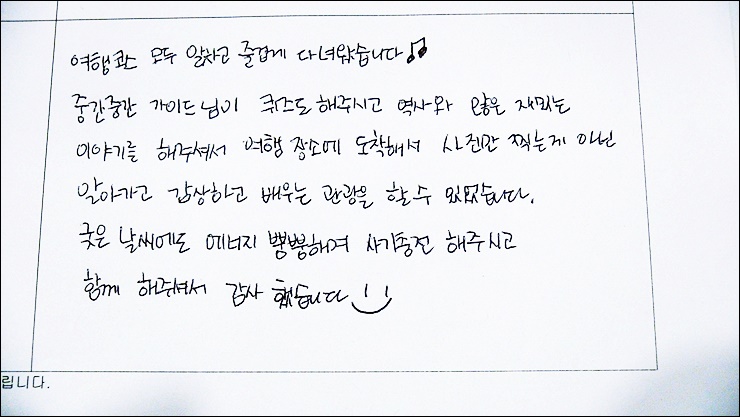 여행코스 모두 알차고 즐겁게 다녀왔습니다♫
중간중간 가이드님이 퀴즈도 해주시고 역사와 많은 재밌는
이야기를 해주셔서 여행 장소에 도착해서 사진만 찍는게 아닌
알아가고 감상하고 배우는 관광을 할 수 있었습니다.
궂은 날씨에도 에너지 뿜뿜해져 사기충전 해주시고
함께 해주셔서 감사 했습니다
립니다.